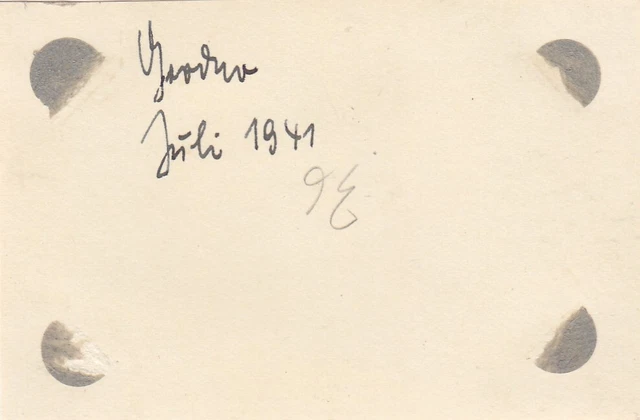 Grodno
Juli 1941
9E